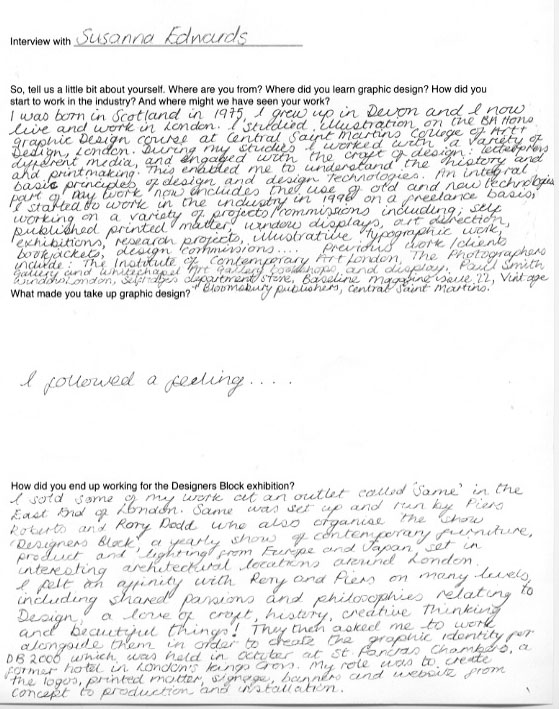 Interview with Susanna Edwards
So, tell us a little bit about yourself. Where are you from? Where did you learn graphic design? How did you
start to work in the industry? And where might we have seen your work?
I was born in Scotland in 1975, I grew up in Devon and I now
live and work in London. I studied illustration on the BA Hons
graphic Design course at Central Saint Martins College of Art +
Design, London. During my studies I worked with a variety of
different media, and engaged with the craft of design: letterpress
and printmaking. This enabled me to understand the history and
basic principles of design and design Technologies. An integral
part of my work now includes the use of old and new technologies
I started to work in the industry in on a freelance basis,
working on a variety of projects/commissions including; self
published printed matter, window displays, art direction,
exhibitions, research projects, illustrative typographic work,
bookjackets, design commissions.... Previous work/clients
include: The Institute of Contemporary Art London, The Photographers
Gallery and Whitechapel Art Gallery bookshops, and display, Paul Smith
window London, Selfridges department store, Baseline magazine issue 22, Vintage
What made you take up graphic design? + Bloomsbury publishers, Central Saint Martins.
I followed a feeling....
How did you end up working for the Designers Block exhibition?
I sold some of my work at an outlet called 'Same' in the
East End of London. Same was set up and run by Piers
Roberts and Rory Dodd who also organise the show
'Designers Block' a yearly show of contemporary furniture,
product and lighting from Europe and Japan, set in
interesting architectural locations around London.
I felt an affinity with Rory and Piers on many levels,
including shared passions and philosophies relating to
Design, a love of craft, history, creative thinking
and beautiful things! They then asked me to work
alongside them in order to create the graphic identity for
DB 2000 which was held in October at St. Pancras Chambers, a
former hotel in London's Kings Cross. My role was to create
the logos, printed matter, signage, banners and website from
concept to production and installation.